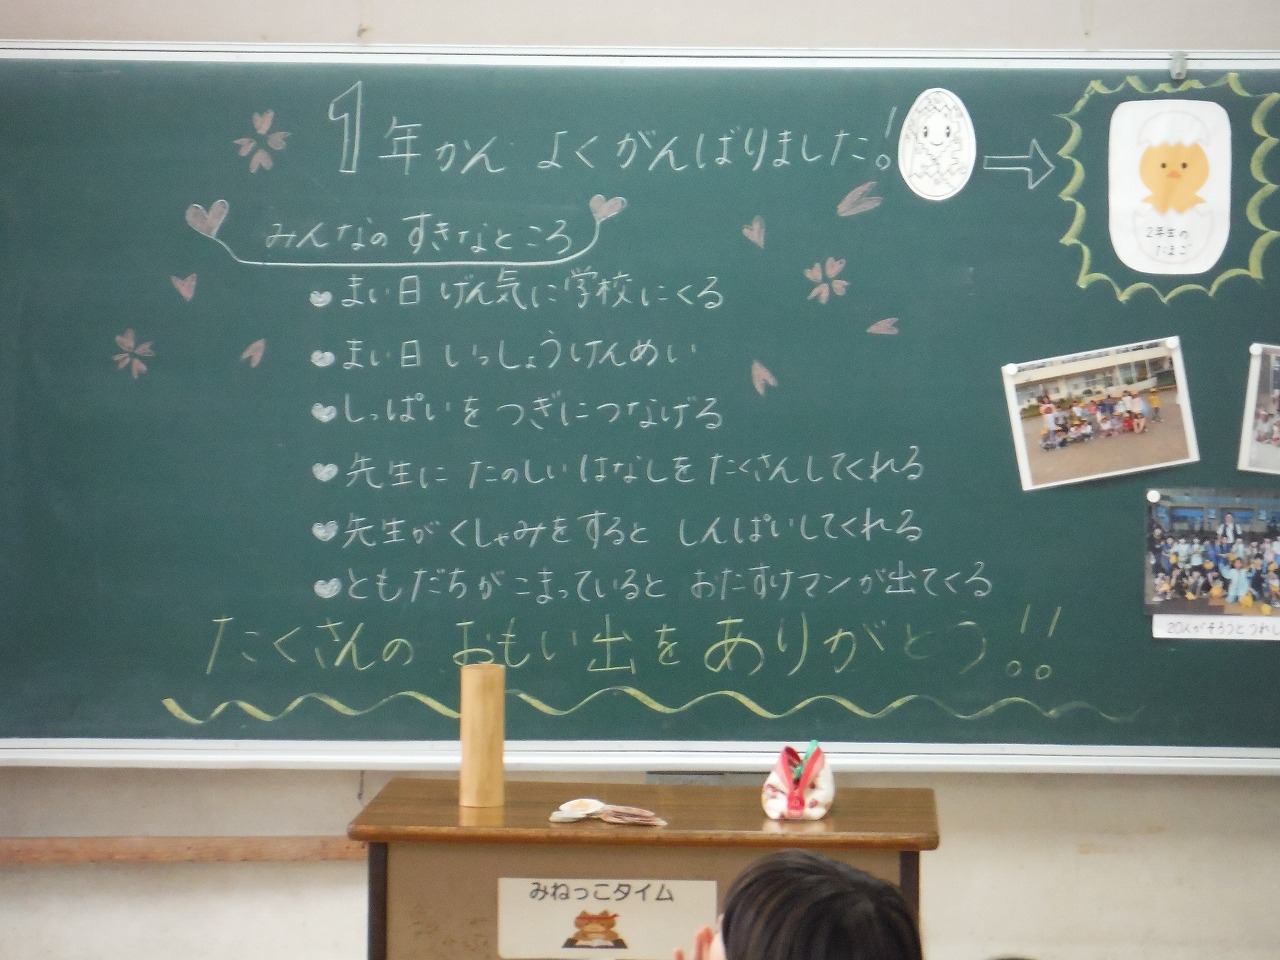 1年かん よくがんばりました!
2年生の
たまご
みんなの すきなところ
まい日 げん気に学校にくる
まい日 いっしょうけんめい
しっぱいを つぎにつなげる
先生に たのしいはなしを たくさんしてくれる
先生がくしゃみをすると しんぱいしてくれる
ともだちがこまっていると おたすけマンが出てくる
たくさんの おもい出を ありがとう!!
20人がそろうとうれし
みねっこタイム